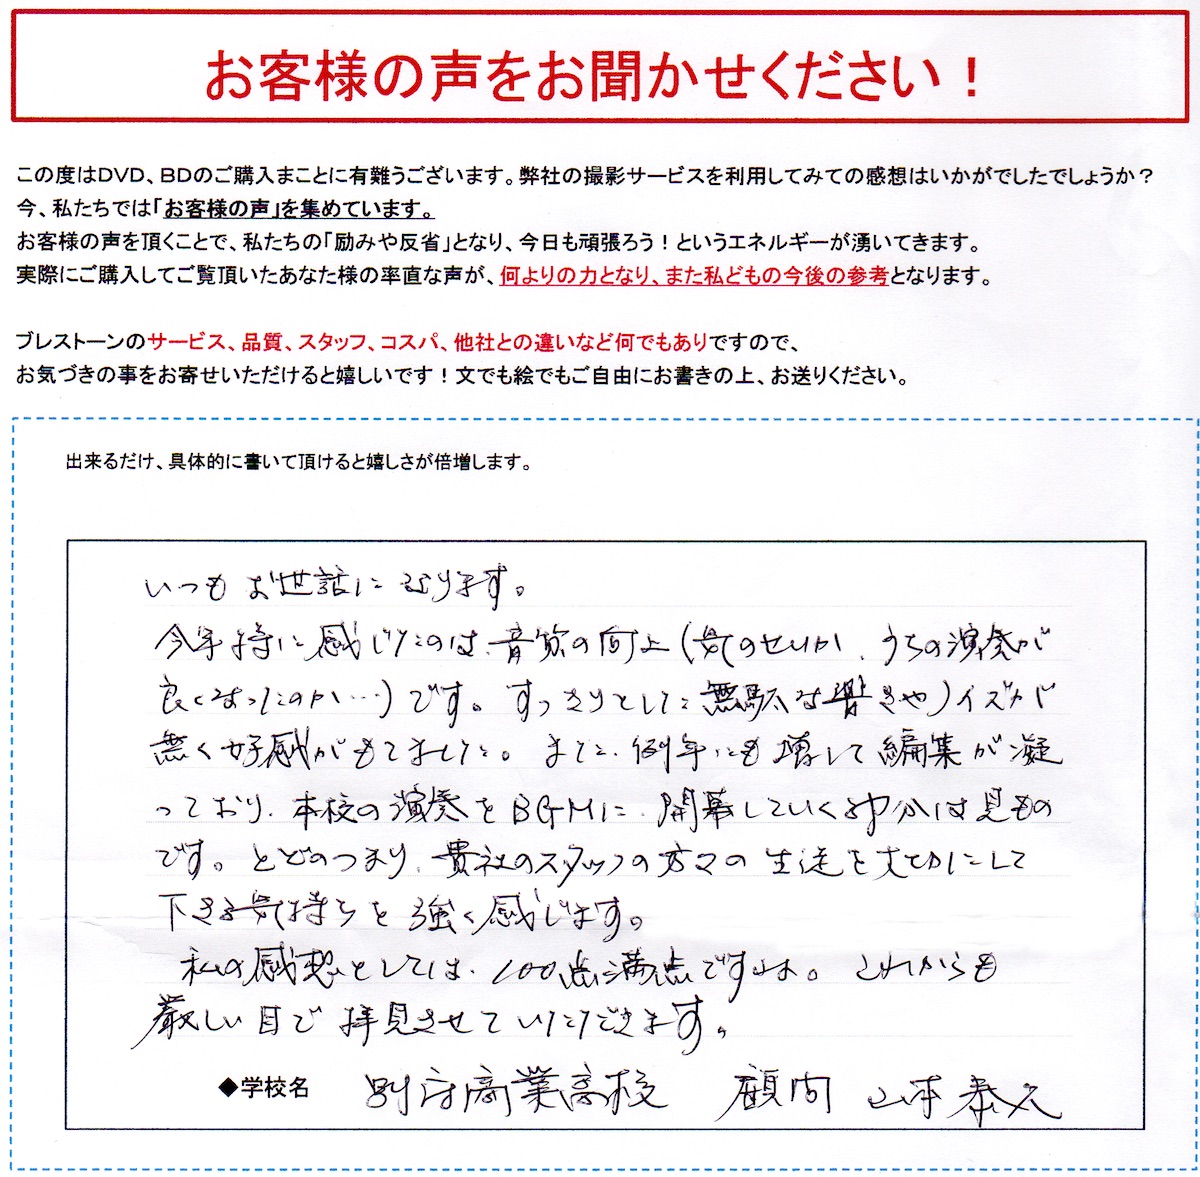 お客様の声をお聞かせください！
この度はDVD、BDのご購入まことに有難うございます。弊社の撮影サービスを利用してみての感想はいかがでしたでしょうか？
今、私たちでは「お客様の声」を集めています。
お客様の声を頂くことで、私たちの「励みや反省」となり、今日も頑張ろう！というエネルギーが湧いてきます。
実際にご購入してご覧頂いたあなた様の率直な声が、何よりの力となり、また私どもの今後の参考となります。
ブレストーンのサービス、品質、スタッフ、コスパ、他社との違いなど何でもありですので、
お気づきの事をお寄せいただけると嬉しいです！文でも絵でもご自由にお書きの上、お送りください。
出来るだけ、具体的に書いて頂けると嬉しさが倍増します。
いつもお世話になります。
今年特に感じたのは、音質の向上（気のせいか、うちの演奏が
良くなったのか…）です。すっきりとした無駄な響きやノイズが
無く好感がもてました。また、例年にも増して編集が凝
っており、本校の演奏をBGMに、開幕していくなかは見もの
です。とどのつまり、貴社のスタッフの方々の生徒を大切にして
下さる気持ちを強く感じます。
私の感想としては、100点満点ですよ。これからも
厳しい目で拝見させていただきます。
◆学校名 別府商業高校 顧問 山本泰久